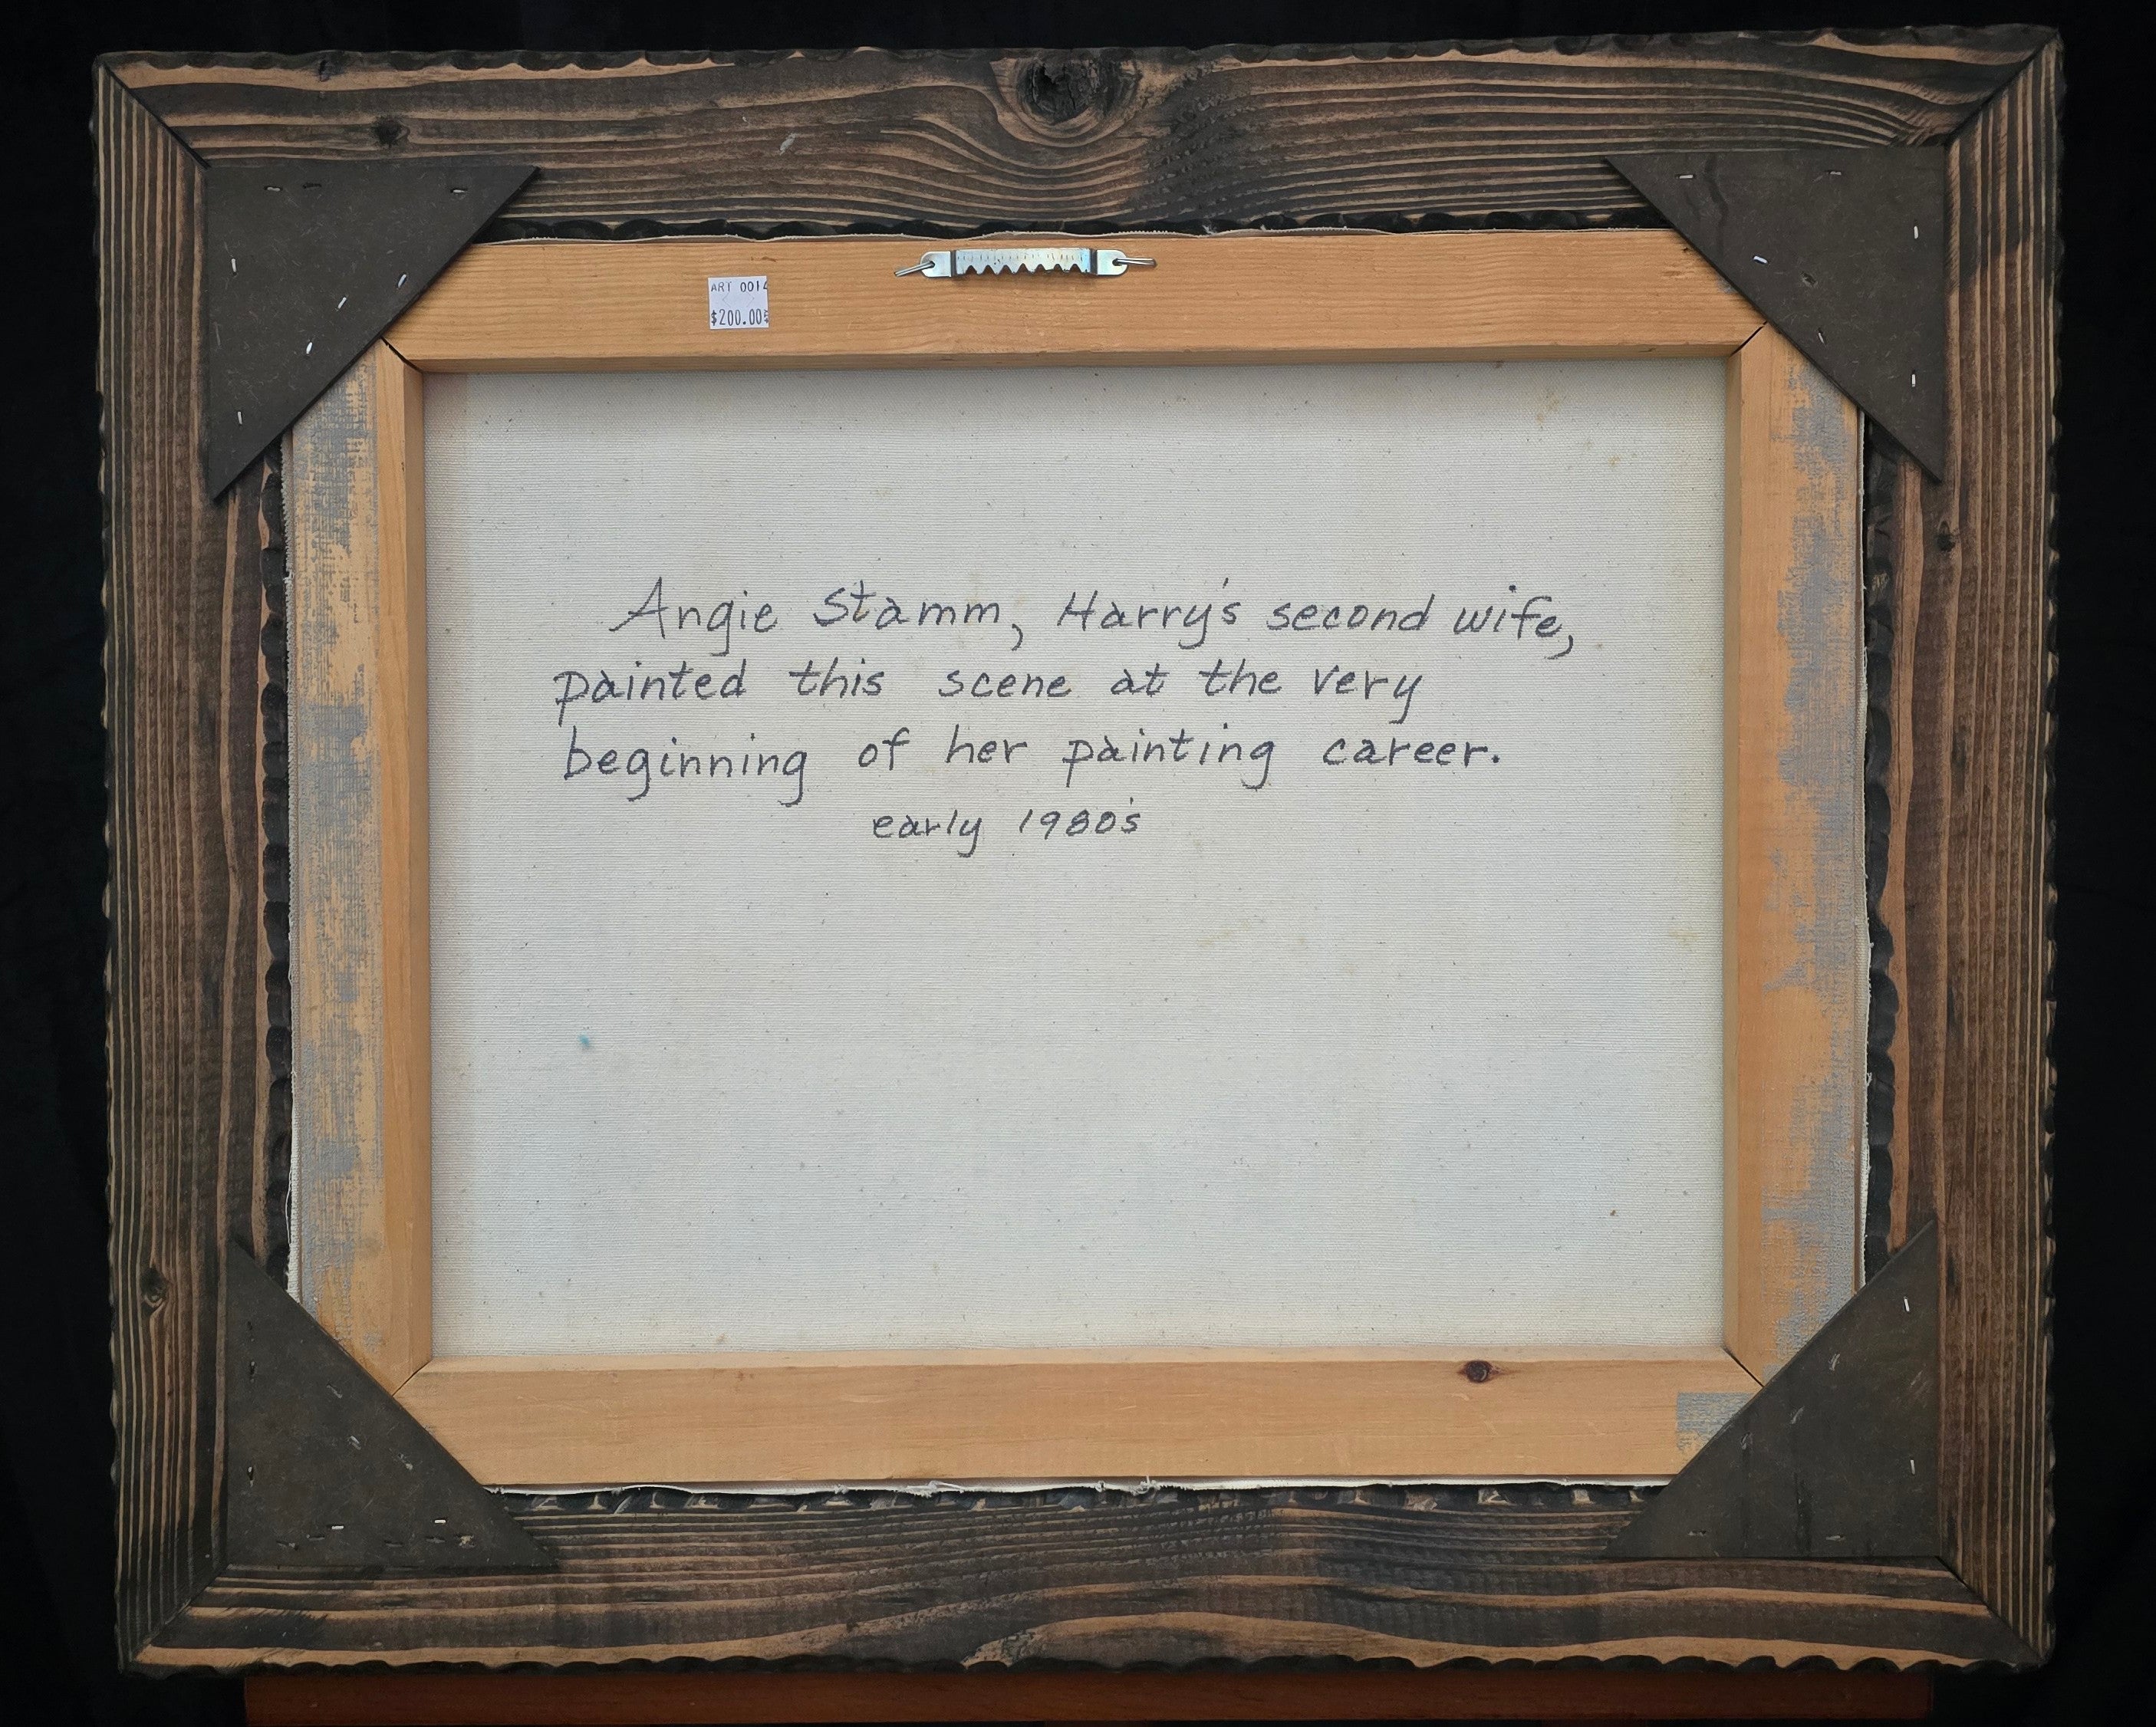 ART 0014
$200.00
Angie Stamm, Harry's second wife,
painted this scene at the very
beginning of her painting career.
early 1980's